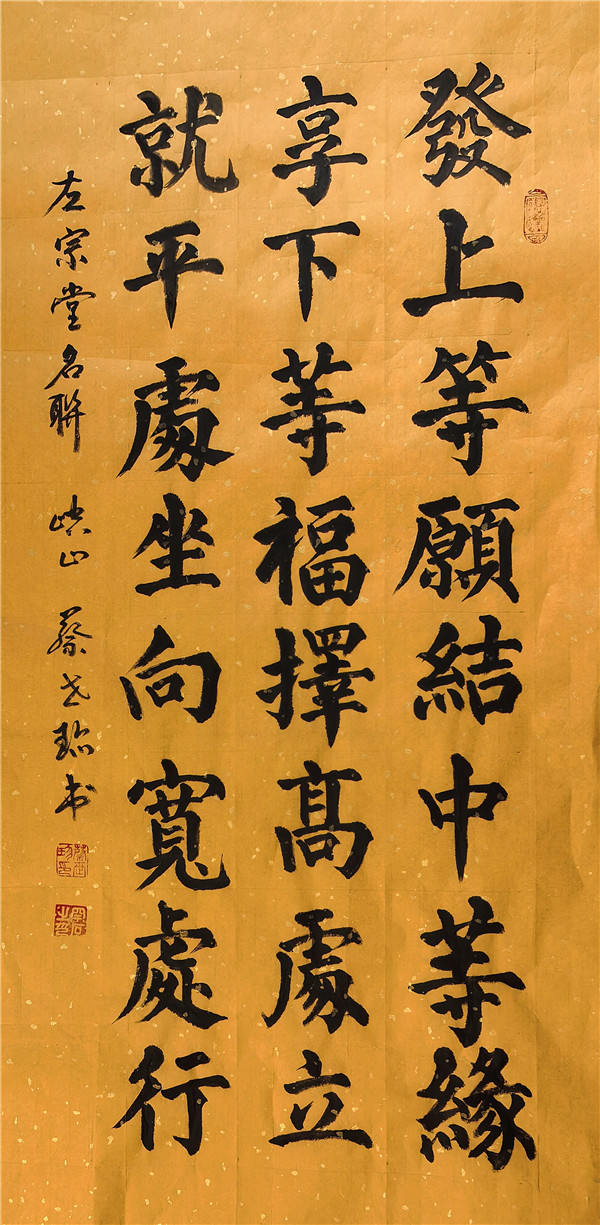 發上等願結中等緣
享下等福擇高處立
就平處坐向寬處行
左宗堂名聯 峡山 蔡世珍书